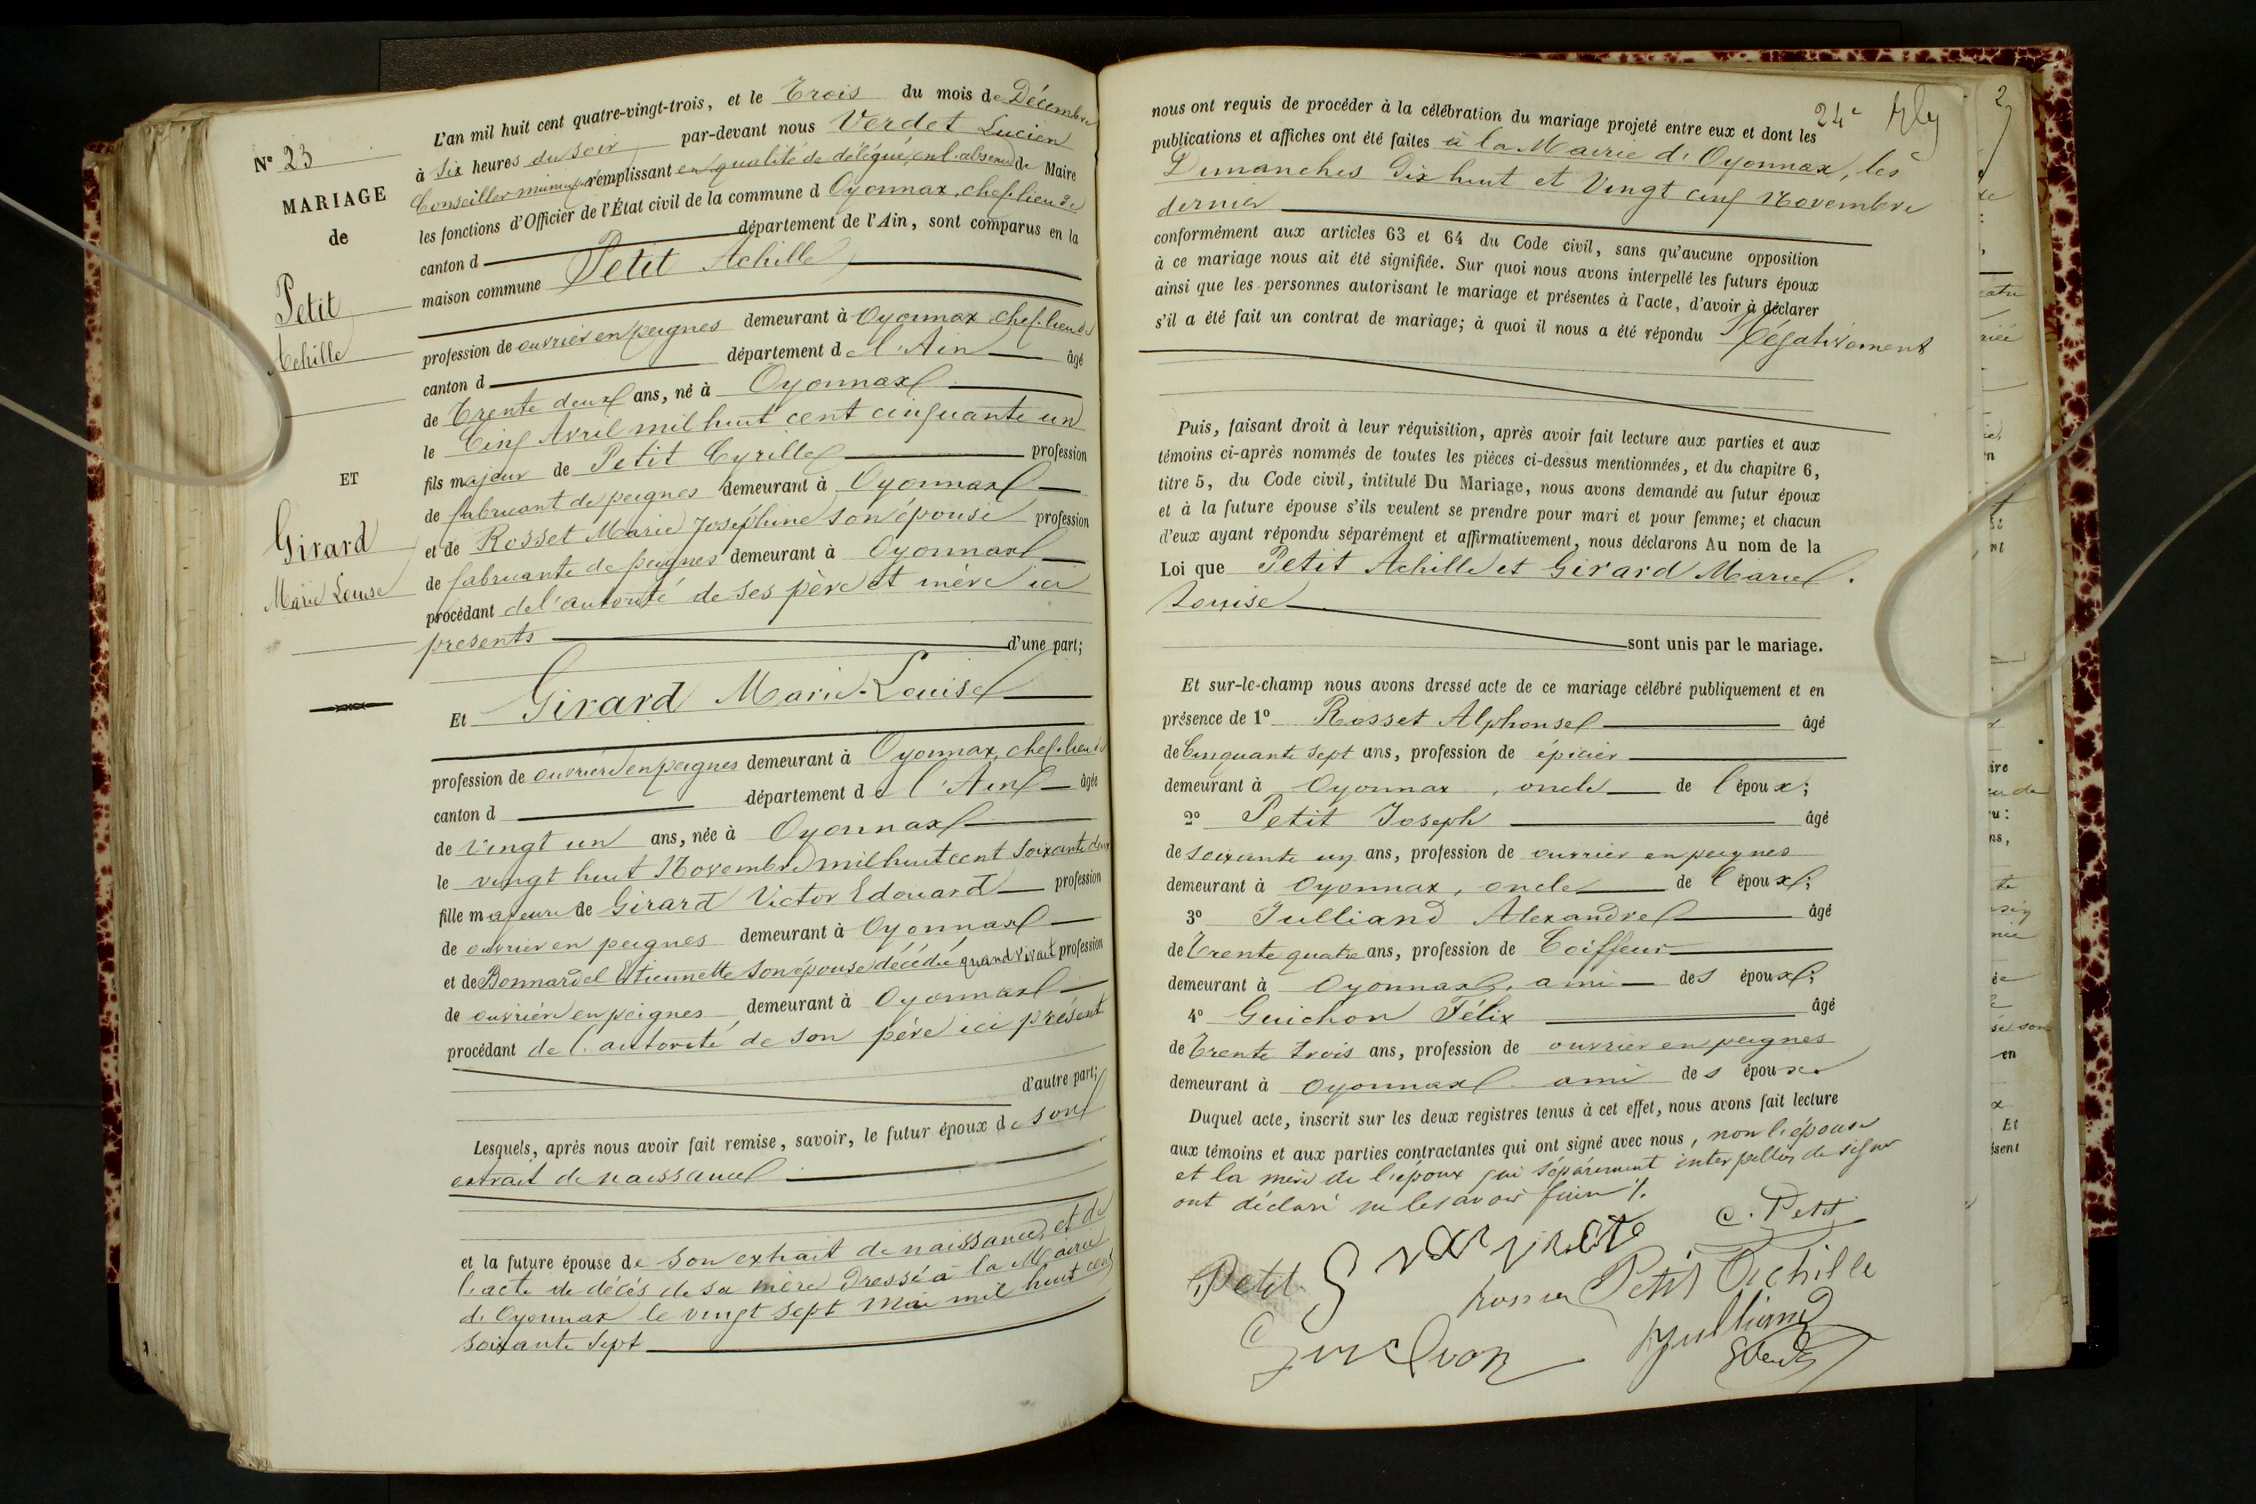 N° 23
MARIAGE
de
Petit
Achille
ET
Girard
Marie Louise
L'an mil huit cent quatre-vingt-trois, et le Trois du mois de Décembre
à Six heures du soir par-devant nous Verdet Lucien
Conseiller municipal remplissant en qualité de délégué, en l'absence de Maire
les fonctions d'Officier de l'État civil de la commune d Oyonnax, chef-lieu de
canton d département de l'Ain, sont comparus en la
maison commune Petit Achille
profession de ouvrier en peignes demeurant à Oyonnax chef-lieu de
canton d département de l'Ain âgé
de Trente deux ans, né à Oyonnax
le Cinq Avril mil huit cent cinquante un
fils majeur de Petit Cyrille profession
de fabricant de peignes demeurant à Oyonnax
et de Rosset Marie Joséphine son épouse profession
de fabricante de peignes demeurant à Oyonnax
procédant de l'autorité de ses père et mère ici
présents d'une part;
Et Girard Marie-Louise
profession de ouvrière en peignes demeurant à Oyonnax, chef-lieu de
canton d département de l'Ain âgée
de vingt un ans, née à Oyonnax
le vingt huit Novembre mil huit cent soixante deux
fille majeure de Girard Victor Edouard profession
de ouvrier en peignes demeurant à Oyonnax
et de Bonnardel Etiennette son épouse décédée quand vivait profession
de ouvrière en peignes demeurant à Oyonnax
procédant de l'autorité de son père ici présent
d'autre part;
Lesquels, après nous avoir fait remise, savoir, le futur époux de son
extrait de naissance
et la future épouse de son extrait de naissance et de
l'acte de décès de sa mère dressé à la Mairie
d'Oyonnax le vingt sept Mai mil huit cent
soixante sept
24e
nous ont requis de procéder à la célébration du mariage projeté entre eux et dont les
publications et affiches ont été faites à la Mairie d'Oyonnax, les
Dimanches Dix huit et Vingt cinq Novembre
dernier
conformément aux articles 63 et 64 du Code civil, sans qu'aucune opposition
à ce mariage nous ait été signifiée. Sur quoi nous avons interpellé les futurs époux
ainsi que les personnes autorisant le mariage et présentes à l'acte, d'avoir à déclarer
s'il a été fait un contrat de mariage; à quoi il nous a été répondu Négativement
Puis, faisant droit à leur réquisition, après avoir fait lecture aux parties et aux
témoins ci-après nommés de toutes les pièces ci-dessus mentionnées, et du chapitre 6,
titre 5, du Code civil, intitulé Du Mariage, nous avons demandé au futur époux
et à la future épouse s'ils veulent se prendre pour mari et pour femme; et chacun
d'eux ayant répondu séparément et affirmativement, nous déclarons Au nom de la
Loi que Petit Achille et Girard Marie
Louise
sont unis par le mariage.
Et sur-le-champ nous avons dressé acte de ce mariage célébré publiquement et en
présence de 1° Rosset Alphonse âgé
de Cinquante sept ans, profession de épicier
demeurant à Oyonnax, oncle de l'époux;
2° Petit Joseph âgé
de soixante un ans, profession de ouvrier en peignes
demeurant à Oyonnax, oncle de l'époux;
3° Julliand Alexandre âgé
de Trente quatre ans, profession de Coiffeur
demeurant à Oyonnax, ami des époux;
4° Guichon Félix âgé
de Trente trois ans, profession de ouvrier en peignes
demeurant à Oyonnax ami des époux
Duquel acte, inscrit sur les deux registres tenus à cet effet, nous avons fait lecture
aux témoins et aux parties contractantes qui ont signé avec nous, non l'épouse
et la mère de l'époux qui séparément interpellées de signer
ont déclaré ne le savoir faire %.
C. Petit
Petit
Petit Achille
Julliand
Guichon